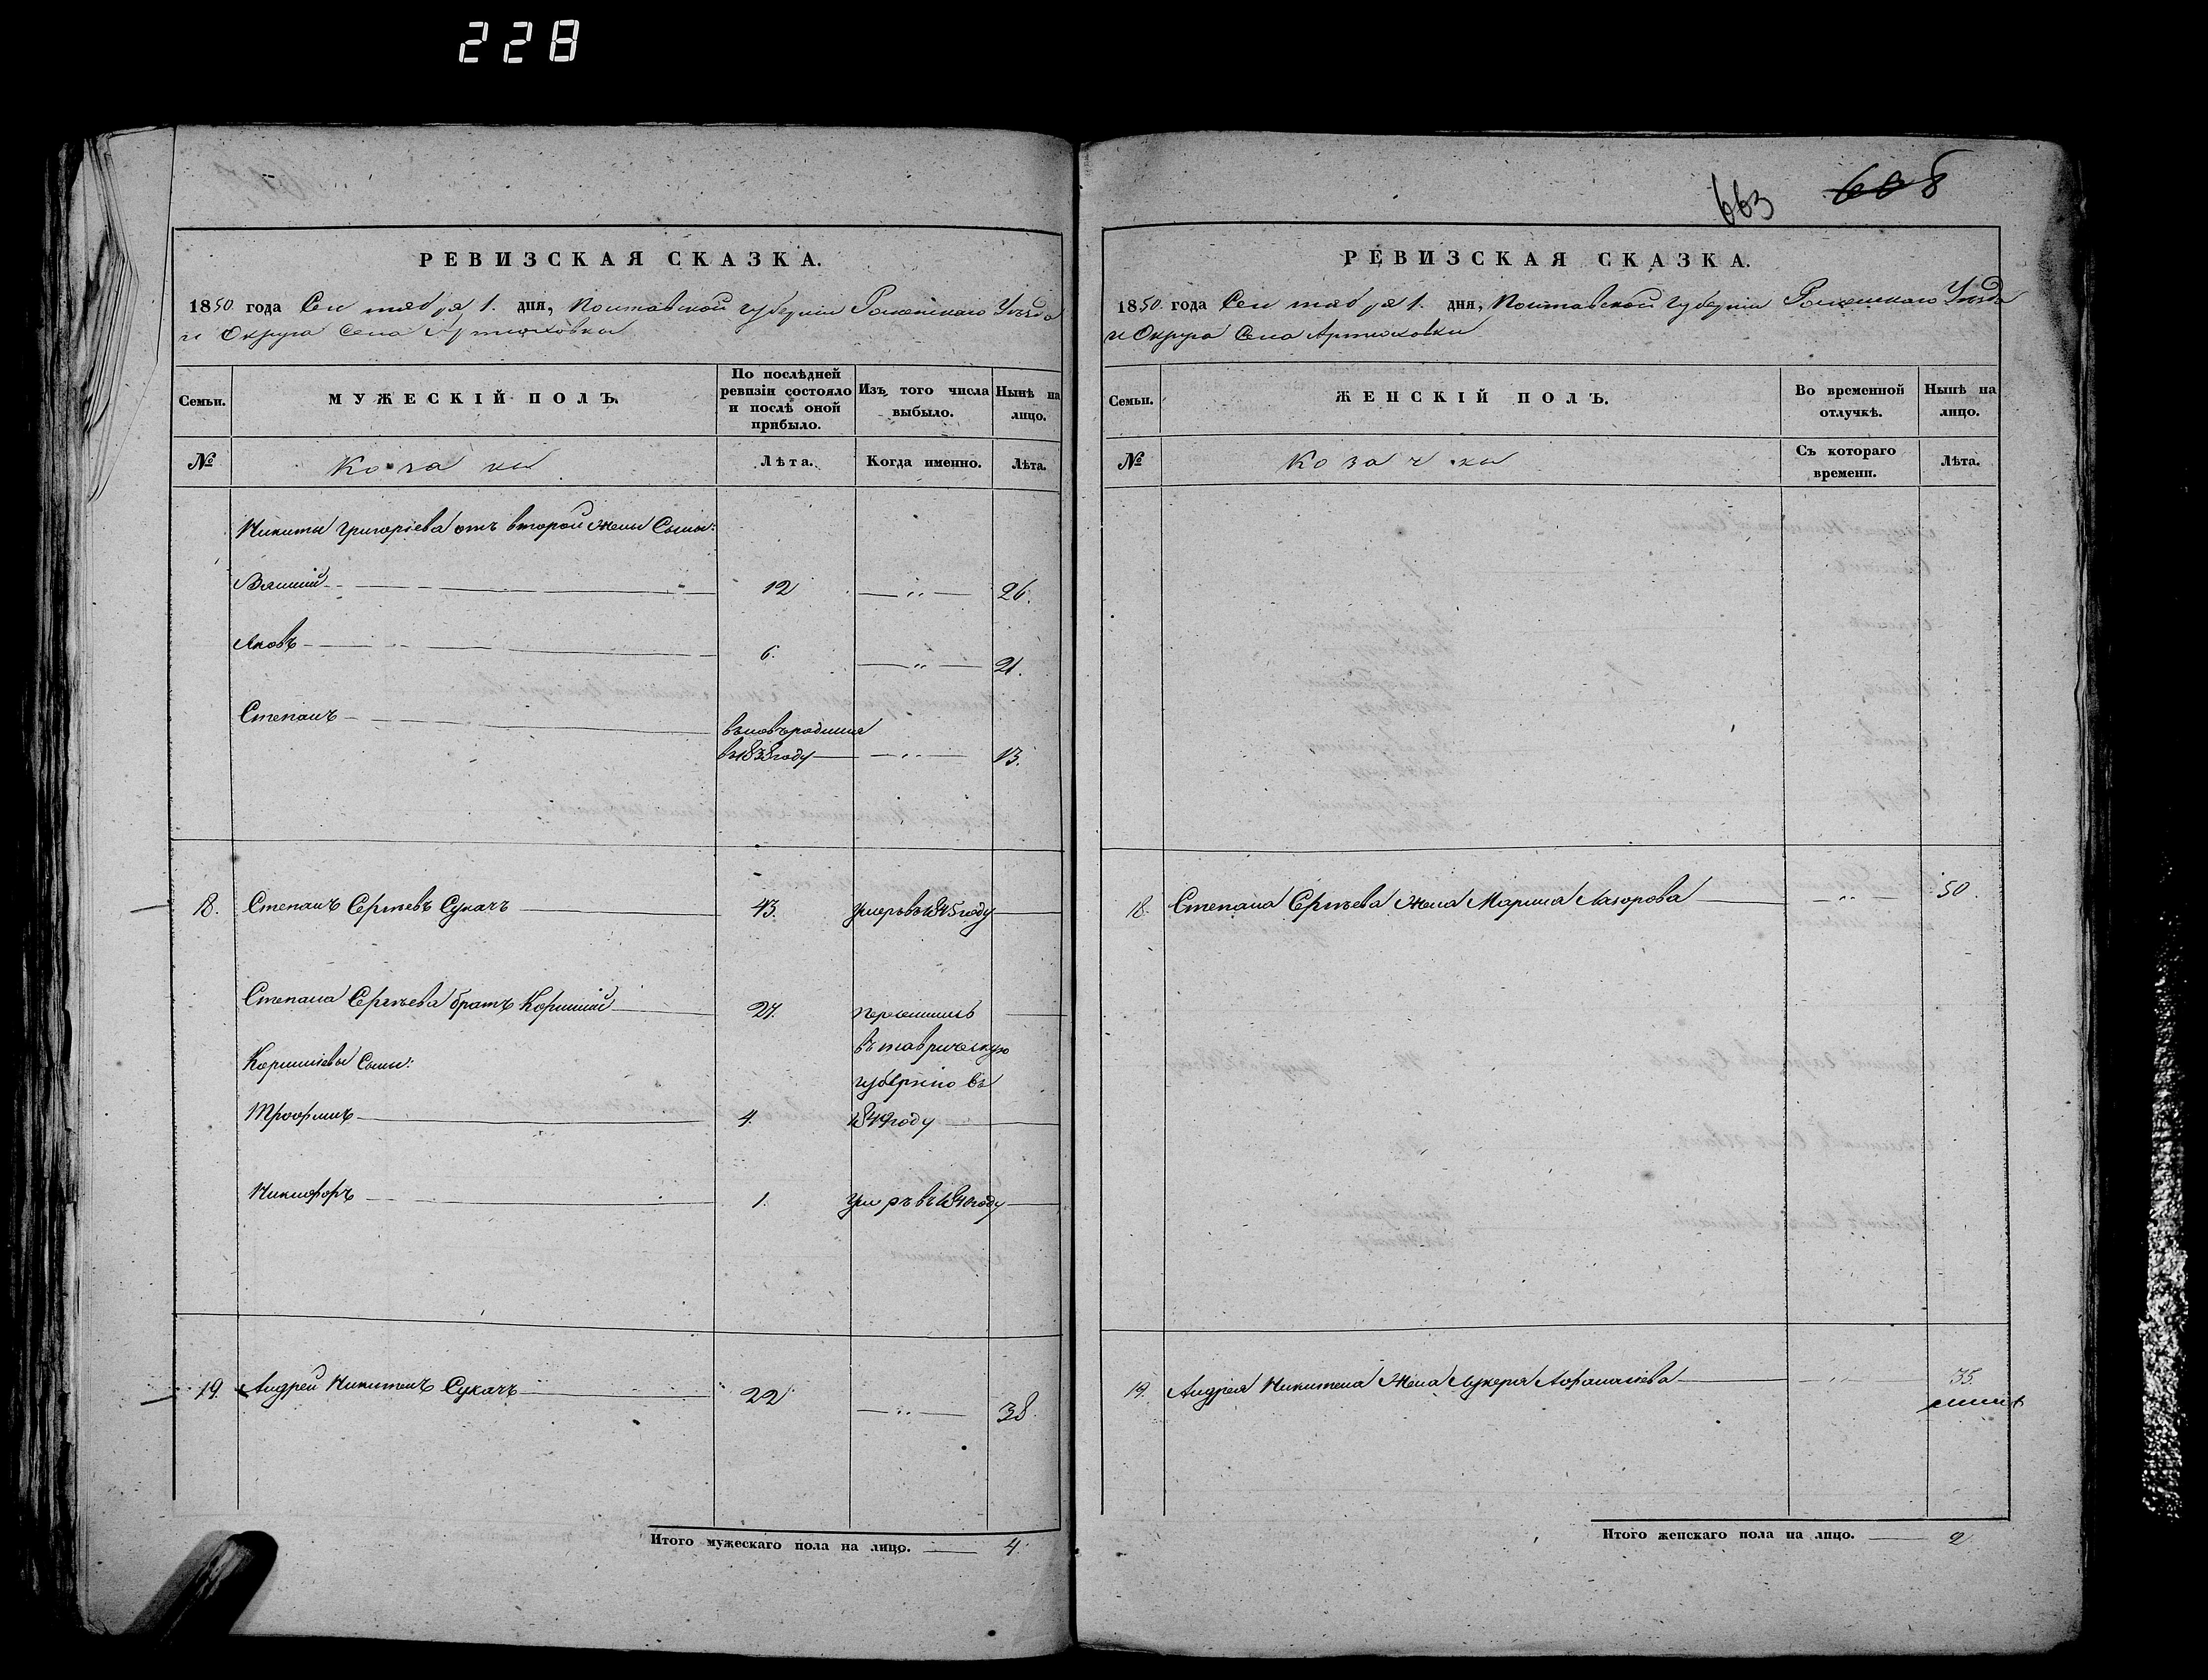 228
РЕВИЗСКАЯ СКАЗКА.
1850 года Сентября 1. дня, Полтавской губерніи Роменскаго Уѣзда
и Округа Села Артюховки
Семьи.
МУЖЕСКІЙ ПОЛЪ.
По послѣдней ревизіи состояло и послѣ оной прибыло.
Изъ того числа выбыло.
Нынѣ на лицо.
№
Козаки
Лѣта.
Когда именно.
Лѣта.
Никиты Григоріева отъ второй жены Сыны:
12 26.
Яковъ 6. 21.
Степанъ
вновьродился
въ 1838 году 13.
18. Степанъ Сергѣевъ Сукачъ 43. Умеръ въ 1845 году
Степана Сергѣева братъ Корнилій 27. Переселились
въ таврическую
Корниліевы Сыны: губернію въ
Трофимъ 4. 1849 году
Никифоръ 1. Умеръ въ 1840 году
19. Андрей Никитенъ Сукачъ 22 38.
Итого мужескаго пола на лицо. 4.
663 608
РЕВИЗСКАЯ СКАЗКА.
1850 года Сентября 1. дня, Полтавской губерніи Роменскаго Уѣзда
и Округа Села Артюховки
Семьи.
ЖЕНСКІЙ ПОЛЪ.
Во временной отлучкѣ.
Нынѣ на лицо.
№
Козачки
Съ котораго времени.
Лѣта.
18. Степана Сергѣева Жена Марина Лазорова 50.
19. Андрея Никитена Жена Лукерья Афанасіева 35.
Итого женскаго пола на лицо. 2